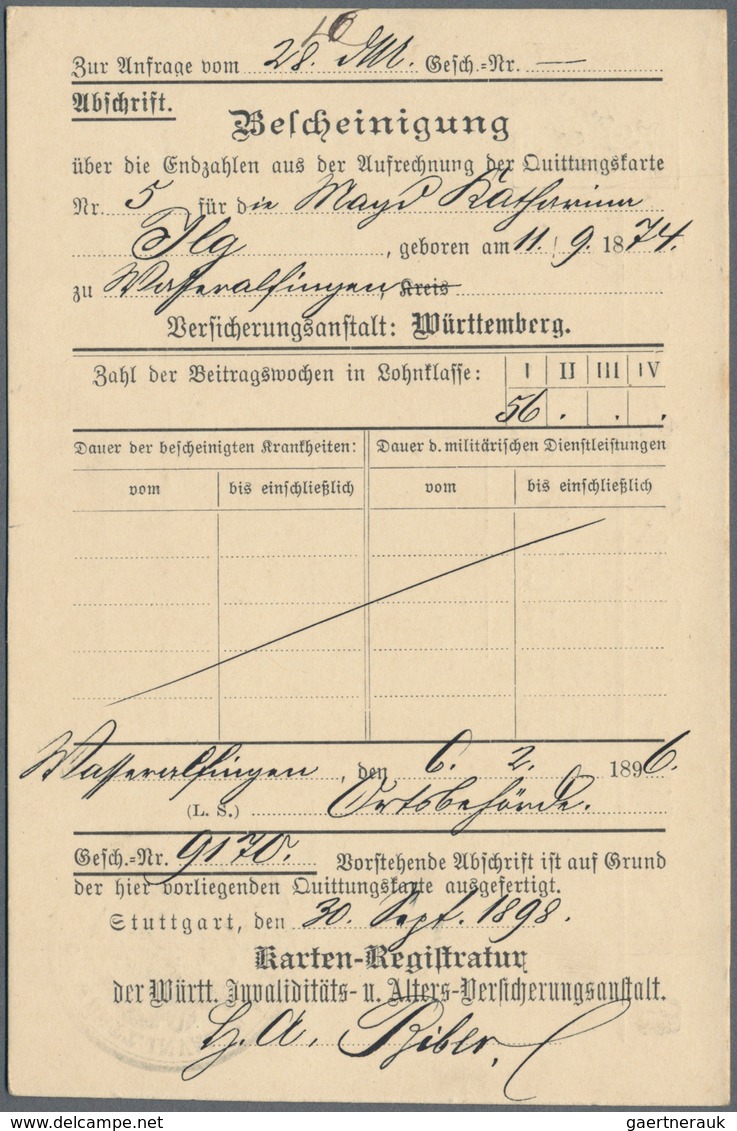 Zur Anfrage vom 28. dMt. Gesch.-Nr. —
Abschrift.
Bescheinigung
über die Endzahlen aus der Aufrechnung der Quittungskarte
Nr. 5 für die Magd Katharina
Ilg, geboren am 11. 9. 1874.
zu Wasseralfingen, Kreis
Versicherungsanstalt: Württemberg.
Zahl der Beitragswochen in Lohnklasse: I II III IV
56 . . .
Dauer der bescheinigten Krankheiten: Dauer d. militärischen Dienstleistungen
vom bis einschließlich vom bis einschließlich
Wasseralfingen, den 6. 2. 1896.
(L. S.) Ortsbehörde.
Gesch.-Nr. 9170. Vorstehende Abschrift ist auf Grund
der hier vorliegenden Quittungskarte ausgefertigt.
Stuttgart, den 30. Sept. 1898.
Karten-Registratur
der Württ. Invaliditäts- u. Alters-Versicherungsanstalt.
Biber.
gaertnerauk